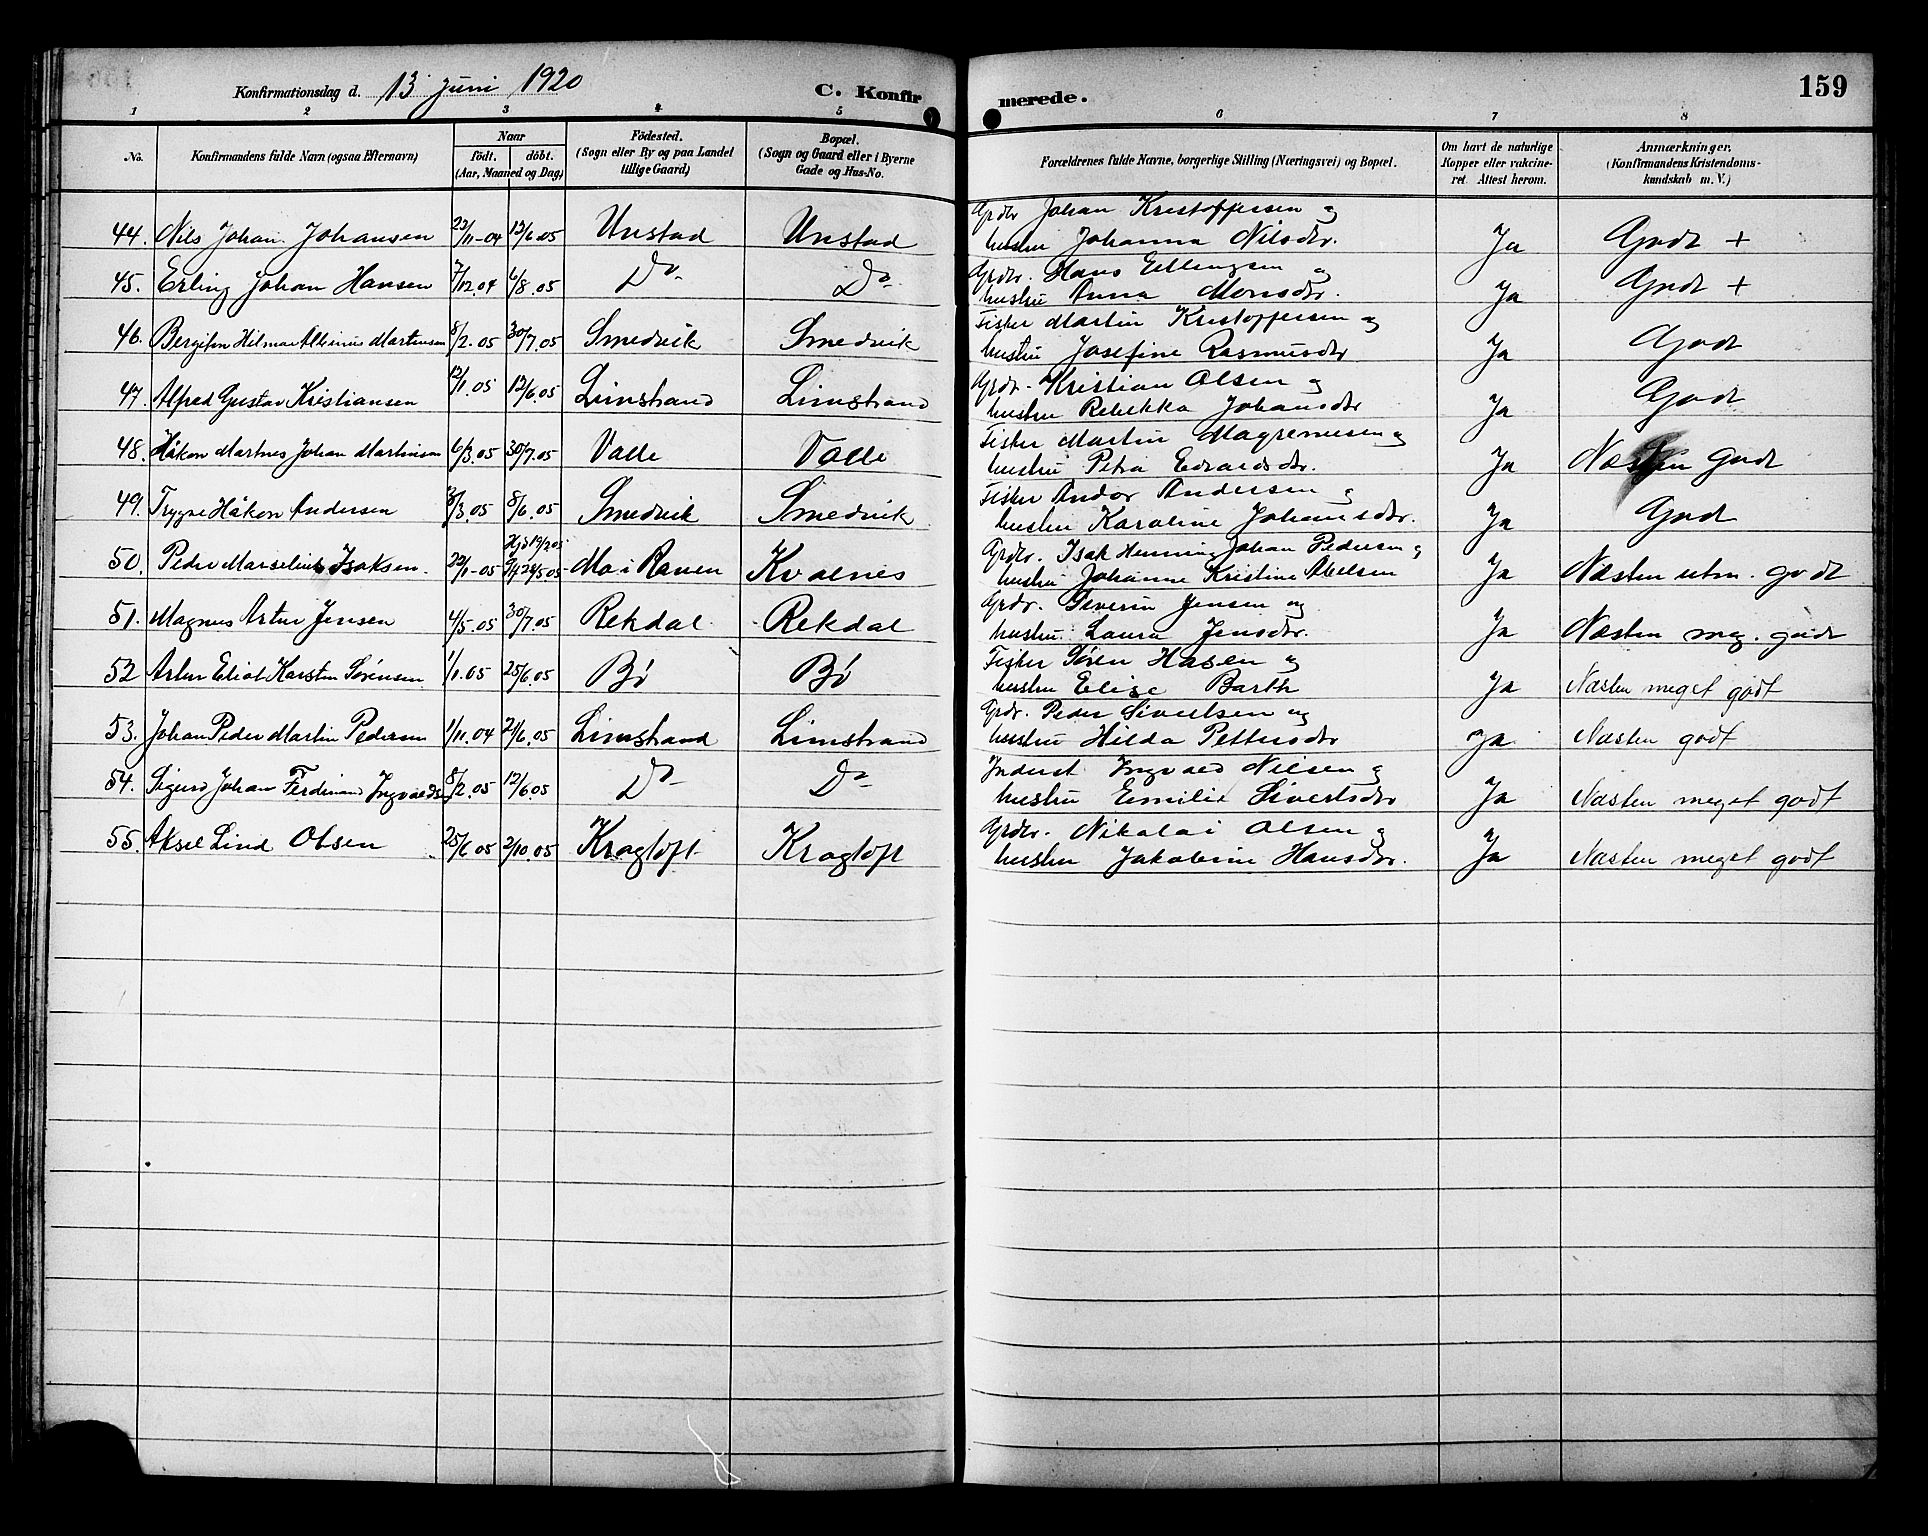 Konfirmationsdag d. 13 juni 1920 C. Konfir merede. 159
1 2 3 4 5 6 7 8
No. Konfirmandens fulde Navn (ogsaa Efternavn) Naar födt. döbt. (Aar, Maaned og Dag) Födested. (Sogn eller By og paa Landet tillige Gaard) Bopæl. (Sogn og Gaard eller i Byerne Gade og Hus-No. Forældrenes fulde Navne, borgerlige Stilling (Næringsvei) og Bopæl. Om havt de naturlige Kopper eller vakcineret. Attest herom. Anmærkninger. (Konfirmandens Kristendomskundskab m. V.)
44. Nils Johan Johansen 23/11-04 12/6.05 Unstad Unstad Grdbr Johan Kristoffersen og
hustru Johanna Nilsdtr. Ja Godt +
45. Erling Johan Hansen 7/12.04 6/8.05 Do Do Grdbr. Hans Ellingsen og
hustru Anna Monsdtr. Ja Godt +
46. Martinsen 8/2.05 30/7.05 Smedvik Smedvik Fisker Martin Kristoffersen og
hustru Josefine Rasmusdtr Ja Godt
47. Alfred Gustav Kristiansen 12/1.05 12/6.05 Limstrand Limstrand Grdr. Kristian Olsen og
hustru Rebekka Johansdtr Ja Godt
48. Håkon Johan Martinsen 6/3.05 30/7.05 Valle Valle Fisker Martin og
hustru Petra Edvardsdtr. Ja Næsten Godt
49. Trygve Håkon Andersen /3.05 8/6.05 Smedvik Smedvik Fisker Andor Andersen og
hustru Karoline Johansdtr. Ja Godt
50. Peder Marselius Isaksen 22/1-05 Hjd 19/2 05 24/5 05 Mo i Ranen Kvalnes Grdbr. Isak Henning Johan Pedersen og
hustru Johanne Kristine Abelsen Ja Næsten utm. godt
51. Magnus Artur Jensen 4/5.05 30/7.05 Rekdal Rekdal Grdr. Severin Jensen og
hustru Laura Jensdtr. Ja Næsten meg. godt
52 Artur Eliot Karsten Sörensen 1/1.05 25/6.05 Bö Bö Fisker Sören Hasen og
hustru Elise Barth Ja Næsten meget godt
53. Johan Peder Martin Pedersen 1/11.04 24/6.05 Limstrand Limstrand Grdr. Peder Sivertsen og
hustru Hilda Pettersdtr Ja Næsten godt
54. Sigurd Johan Ferdinand Ingvaldsen 8/2.05 12/6.05 Do Do Inderst Ingvald Nilsen og
hustru Emilie Sivertsdtr Ja Næsten meget godt
55. Aksel Lind Olsen 25/6 05 2/10.05 Kragtoft Kragtoft Grdbr. Nikolai Olsen og
hustru Jakobine Hansdtr. Ja Næsten meget godt